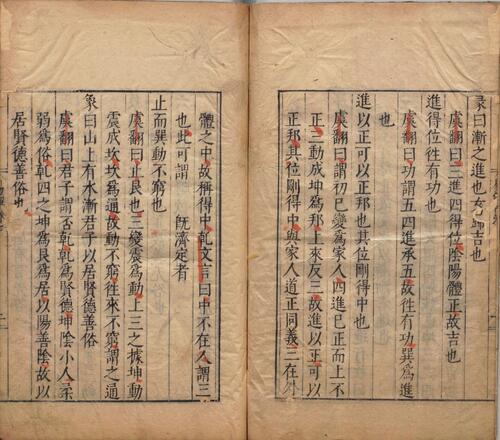 彖曰漸之進也女歸吉也
虞翻曰三進四得位陰陽體正故吉也
進得位往有功也
虞翻曰功謂五四進承五故往有功巽為進
也
進以正可以正邦也其位剛得中也
虞翻曰謂初已變為家人四進已正而上不
正三動成坤為邦上來反三故進以正可以
正邦其位剛得中與家人道正同義三在外
體之中故稱得中乾文言曰中不在人謂三
也此可謂 既濟定者
止而巽動不窮也
虞翻曰止艮也三變震為動上三之據坤動
震成坎坎為通故動不窮往來不窮謂之通
象曰山上有水漸君子以居賢德善俗
虞翻曰君子謂否乾乾為賢德坤陰小人柔
弱為俗乾四之坤為艮為居以陽善陰故以
居賢德善俗也